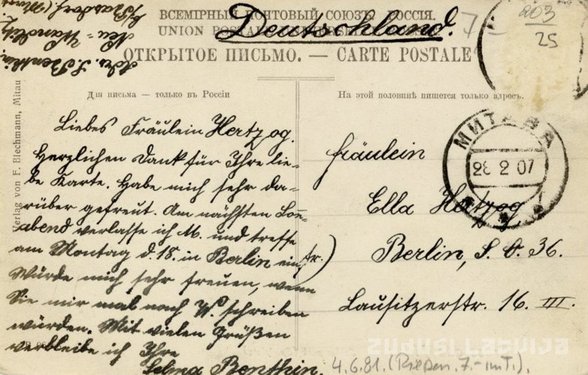 ВСЕМІРНЫЙ ПОЧТОВЫЙ СОЮЗЪ РОССІЯ.
UNION POSTALE
Deutschland.
ОТКРЫТОЕ ПИСЬМО. — CARTE POSTALE
Для письма — только въ Россіи
На этой половинѣ пишется только адресъ.
Verlag von F. Blechmann, Mitau
203
25
МИТАВА
28 2 07
Liebes Fräulein Hertzog.
Herzlichen Dank für Ihre lie-
be Karte. Habe mich sehr da-
rüber gefreut. Am nächsten Son-
abend verlasse ich M. und treffe
am Montag d. 18. in Berlin ein
Würde mich sehr freuen, wenn
Sie mir mal nach W. schreiben
würden. Mit vielen Grüßen
verbleibe ich Ihre
Selma Benthin.
Fräulein
Ella Hertzog
Berlin, S. O. 36.
Lausitzerstr. 16 III.
4.6.81.
zudusilatvija